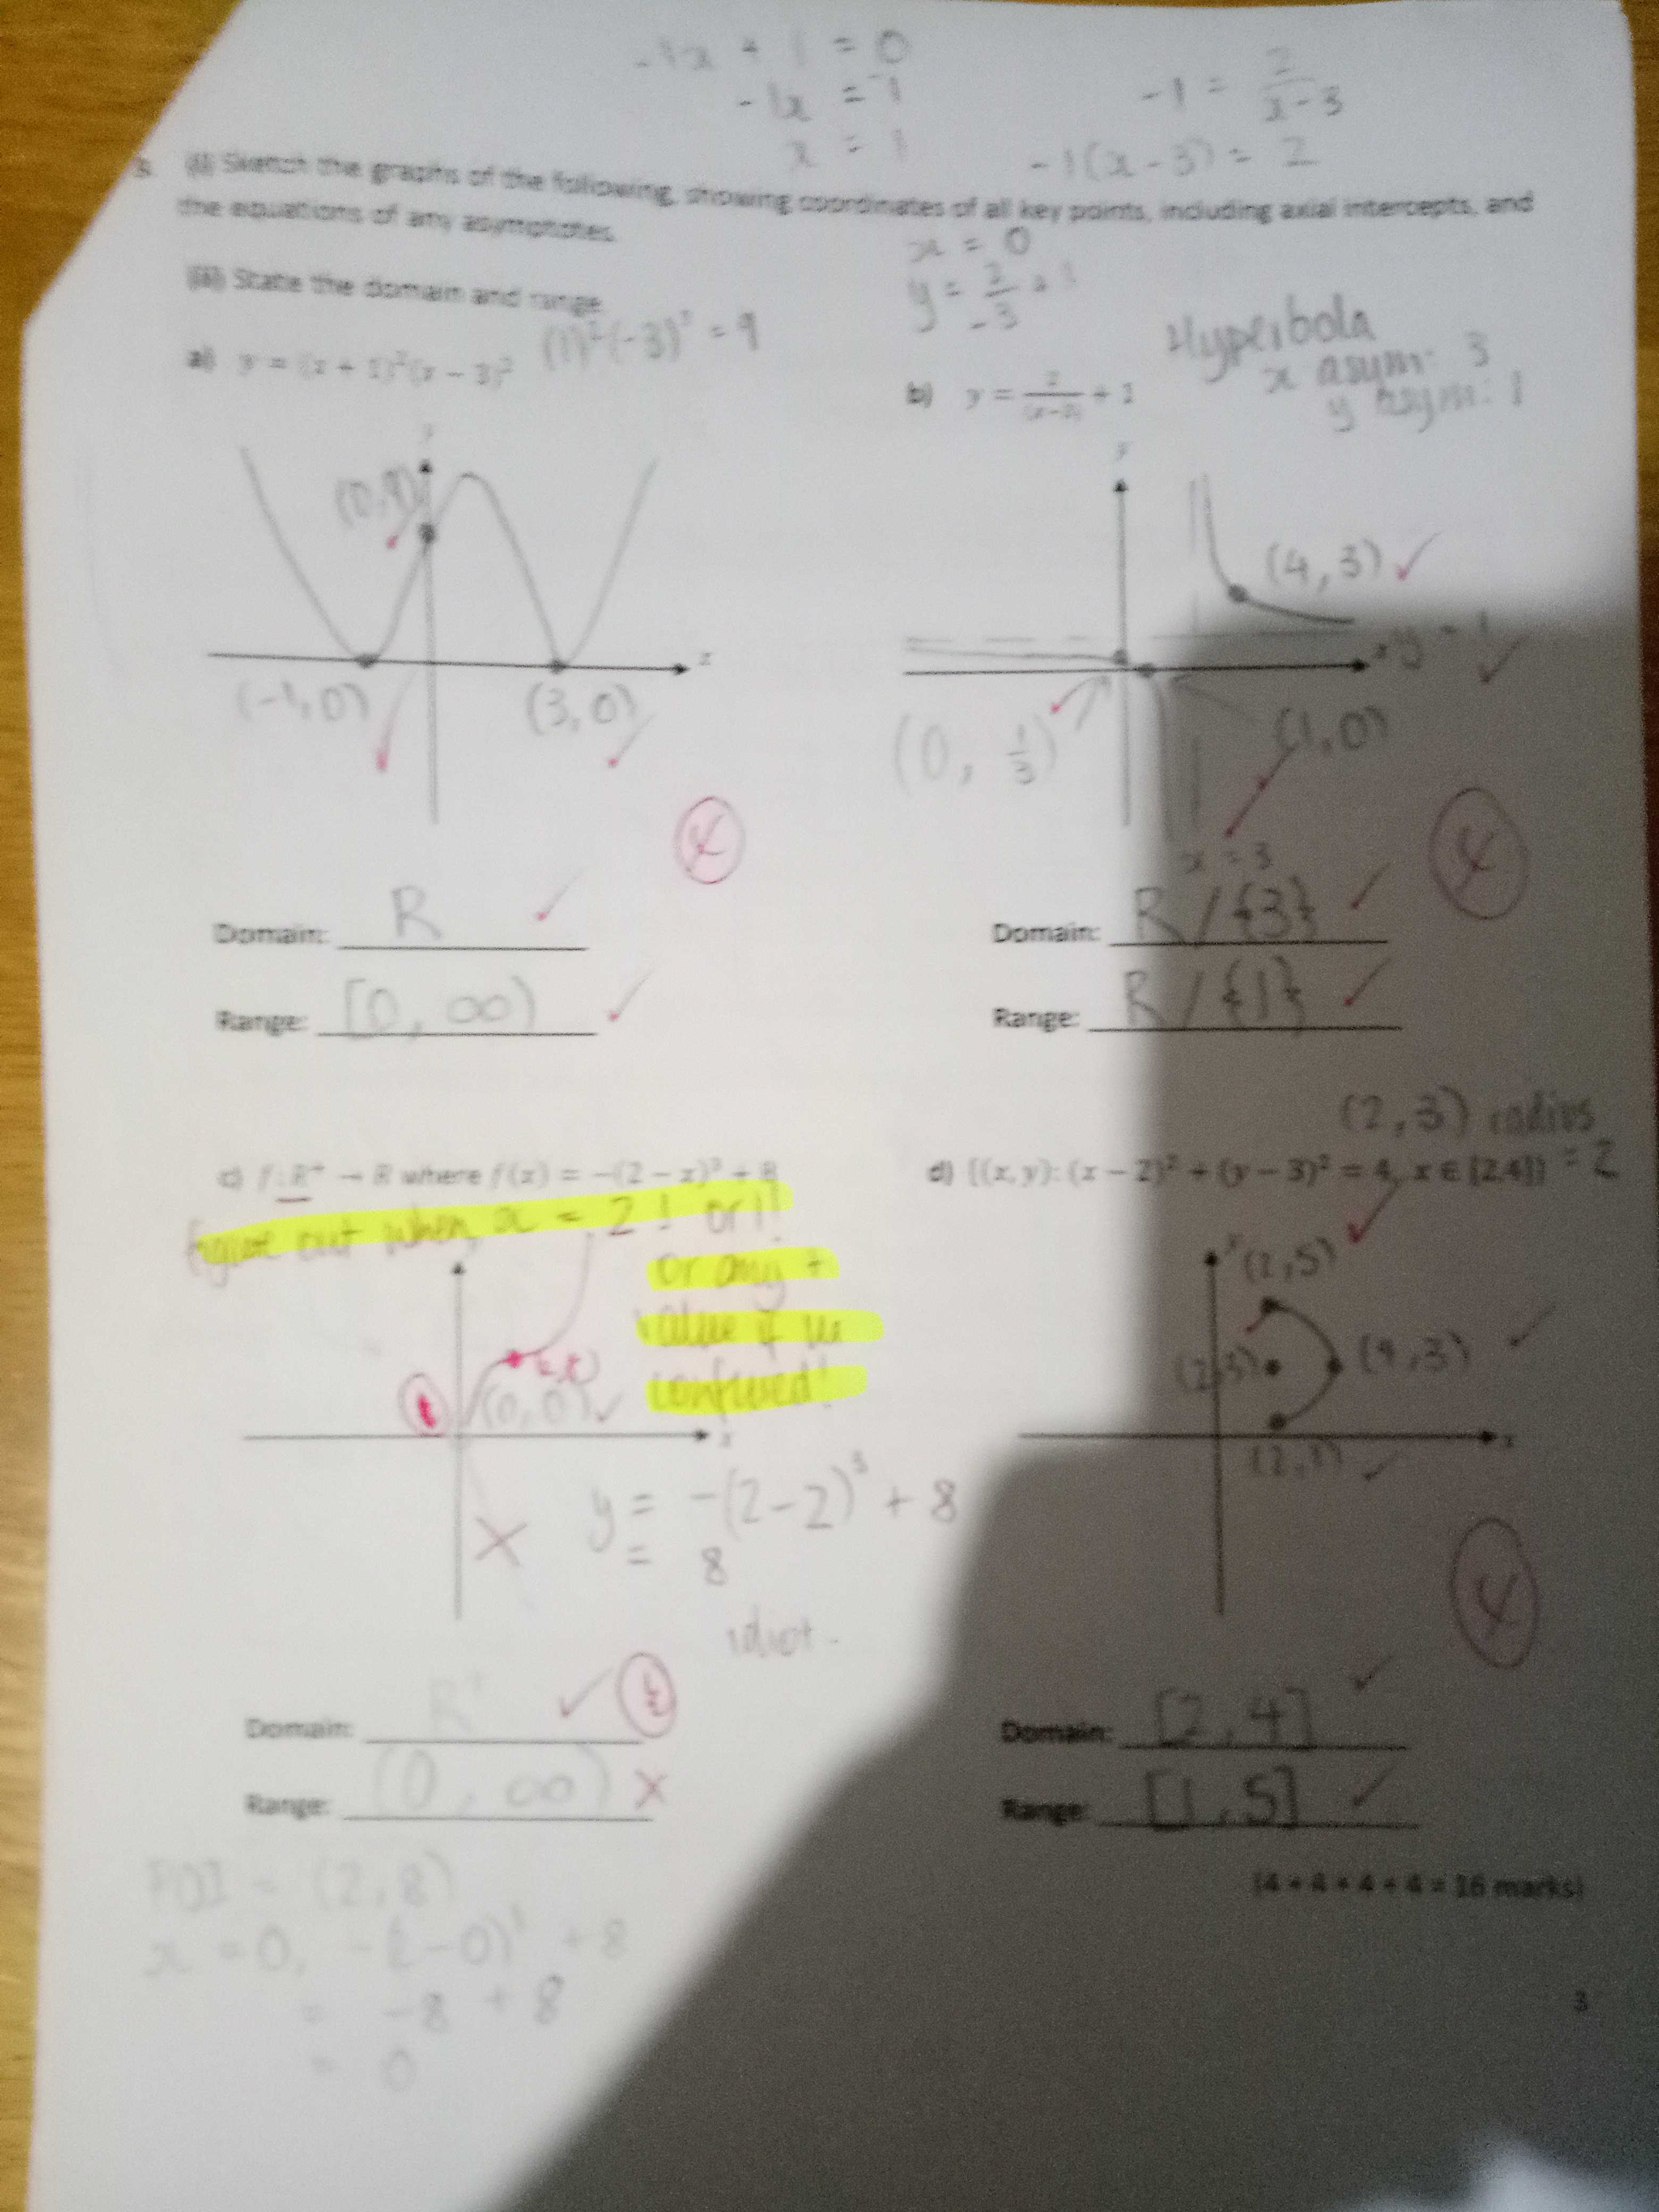 -1x + 1 = 0
-1x = -1
x = 1
-1 = 2/(x-3)
-1(x-3) = 2
3. (i) Sketch the graphs of the following, showing coordinates of all key points, including axial intercepts, and
the equations of any asymptotes.
(ii) State the domain and range
x = 0
y = 2/-3 + 1
a) y = (x + 1)²(x − 3)²
(1)²(-3)² = 9
b) y = 2/(x−3) + 1
Hyperbola
x asym: 3
y asym: 1
y
(0,9)
x
(-1,0)
(3,0)
y
(4,3)
x
y = 1
(0, 1/3)
(1,0)
x = 3
Domain: R
Range: [0, ∞)
Domain: R / {3}
Range: R / {1}
(2,3) radius
= 2
c) f: R⁺ → R where f(x) = −(2 − x)³ + 8
d) {(x, y): (x − 2)² + (y − 3)² = 4, x ∈ [2,4]}
figure out when x = 2! or 1!
or any +
value if ur
confused!
(2,8)
(0,0)
x
y = -(2-2)³ + 8
= 8
idiot.
y
(2,5)
(2,3)
(4,3)
x
(2,1)
Domain: R⁺
Range: (0, ∞)
Domain: [2,4]
Range: [1,5]
POI = (2,8)
x = 0, -(2-0)³ + 8
= -8 + 8
= 0
(4 + 4 + 4 + 4 = 16 marks)
3